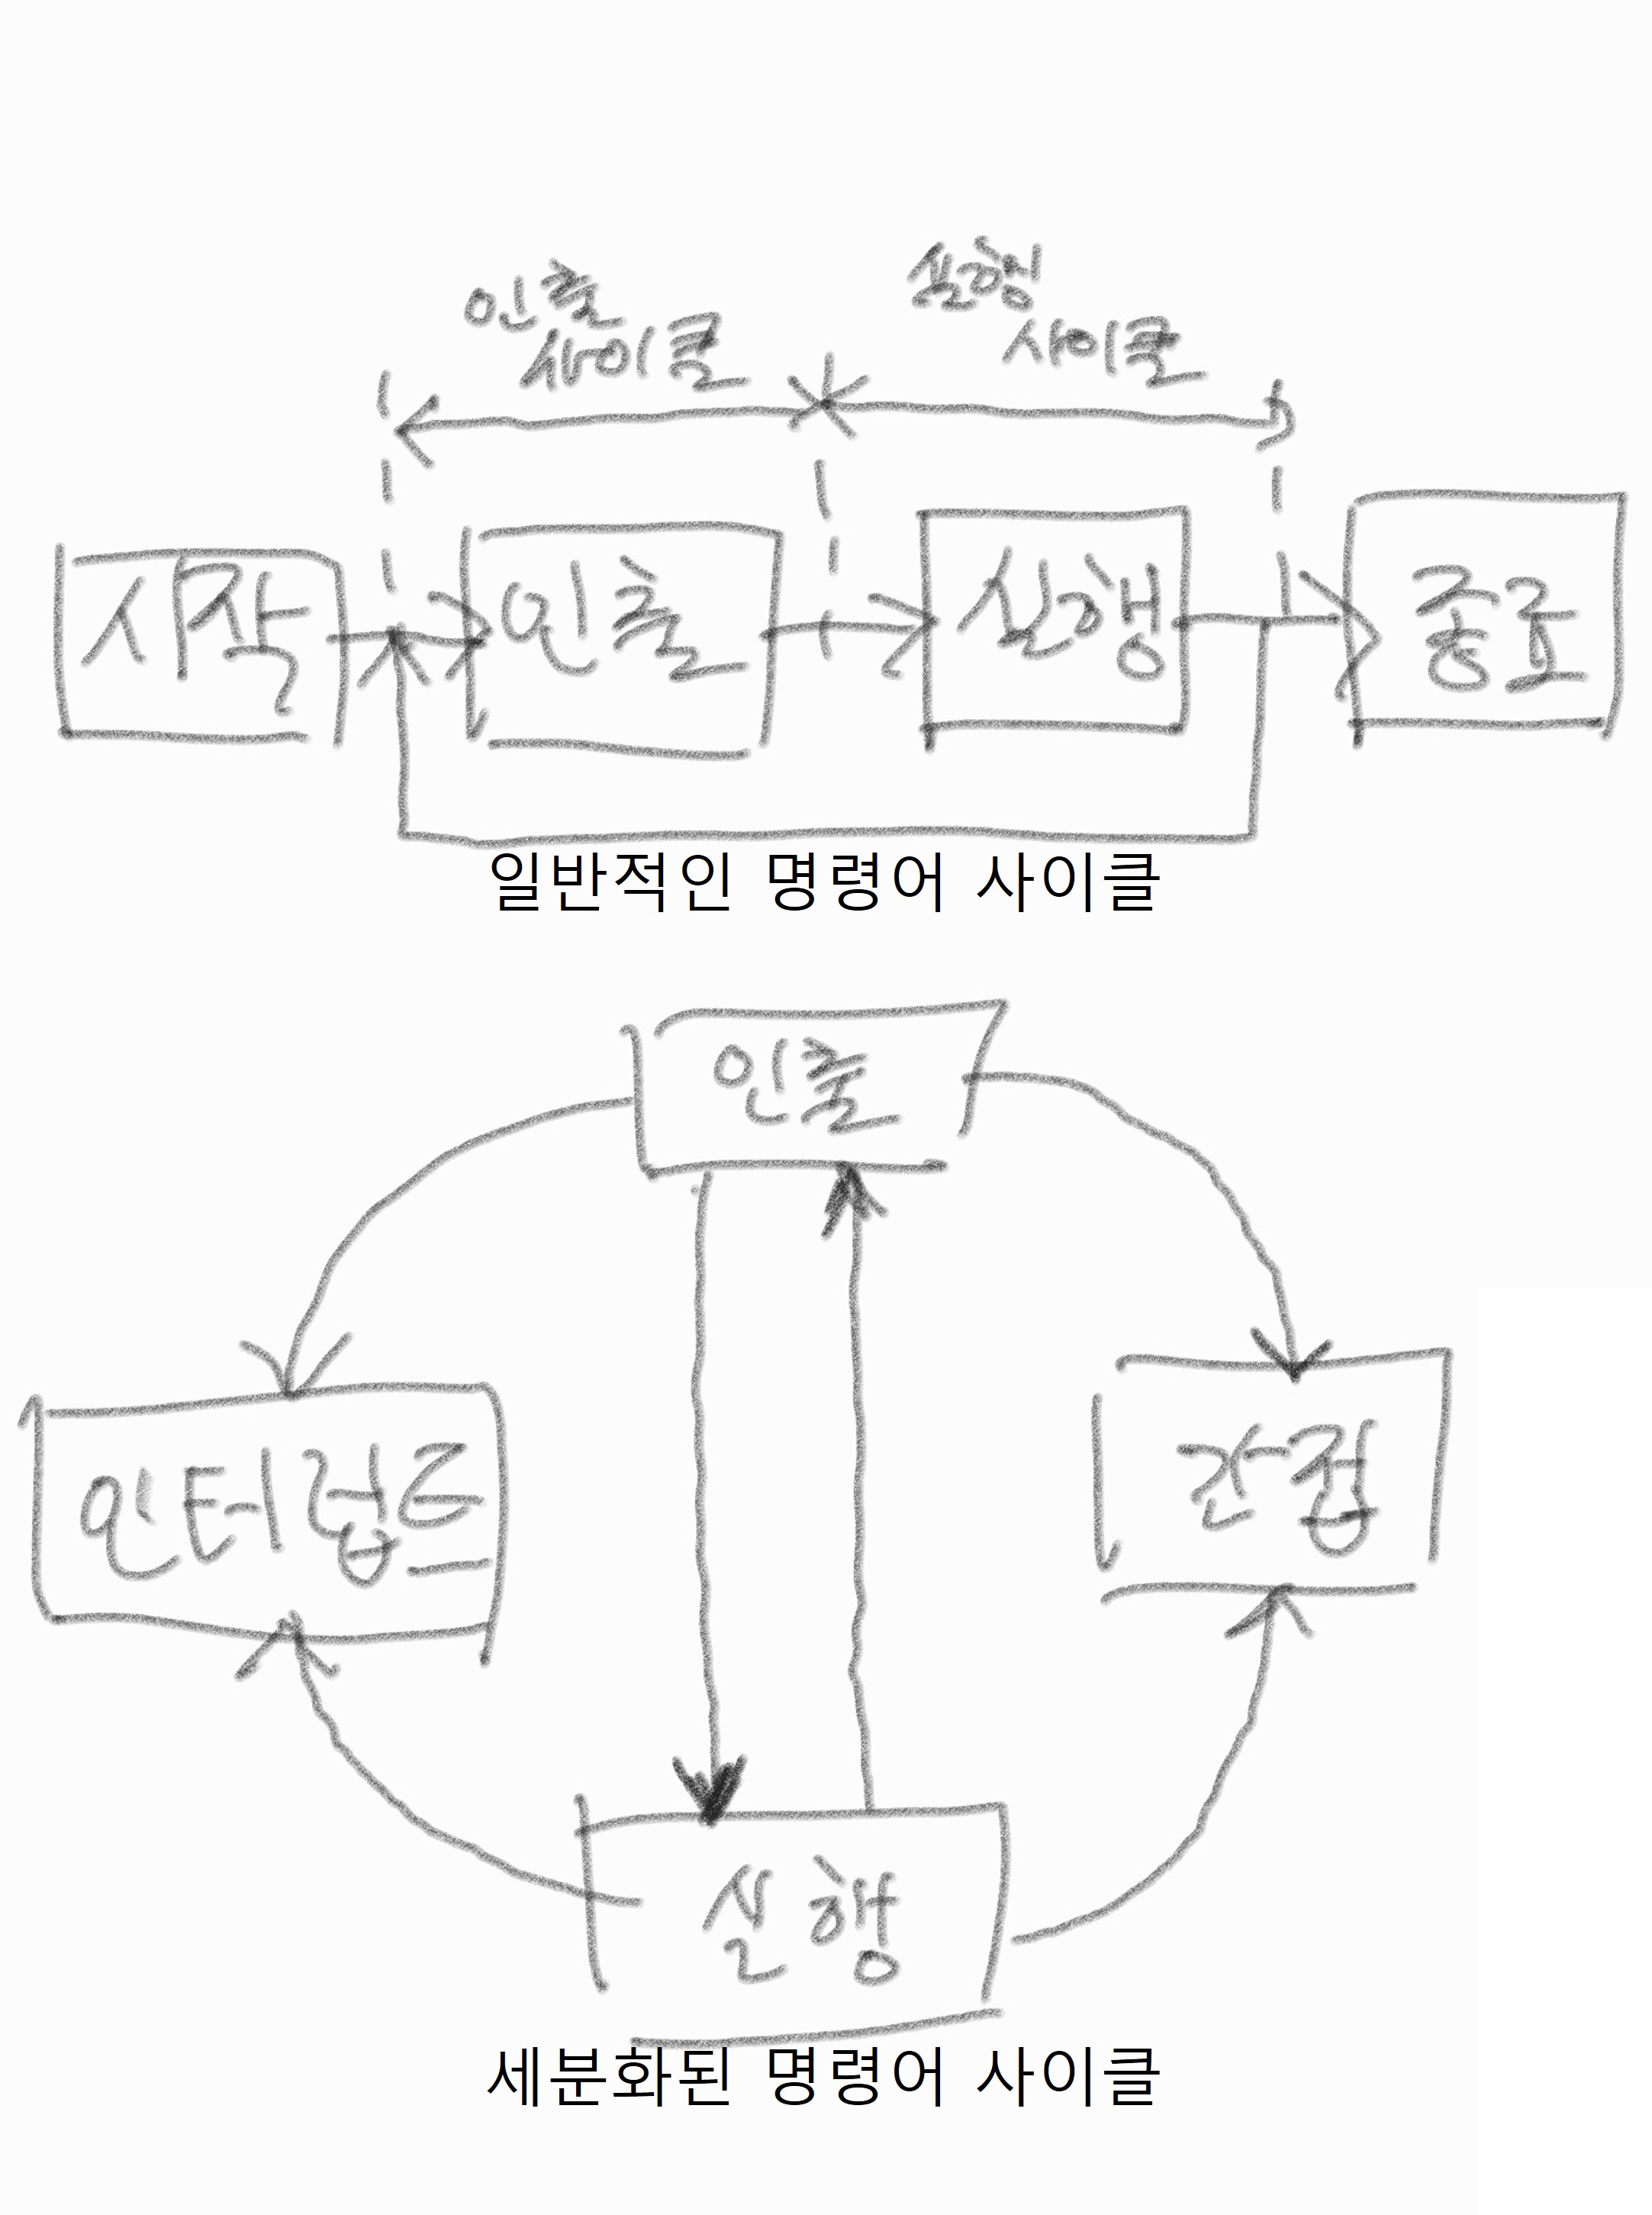 인출
사이클
실행
사이클
시작
인출
실행
종료
일반적인 명령어 사이클
인출
인터럽트
간접
실행
세분화된 명령어 사이클